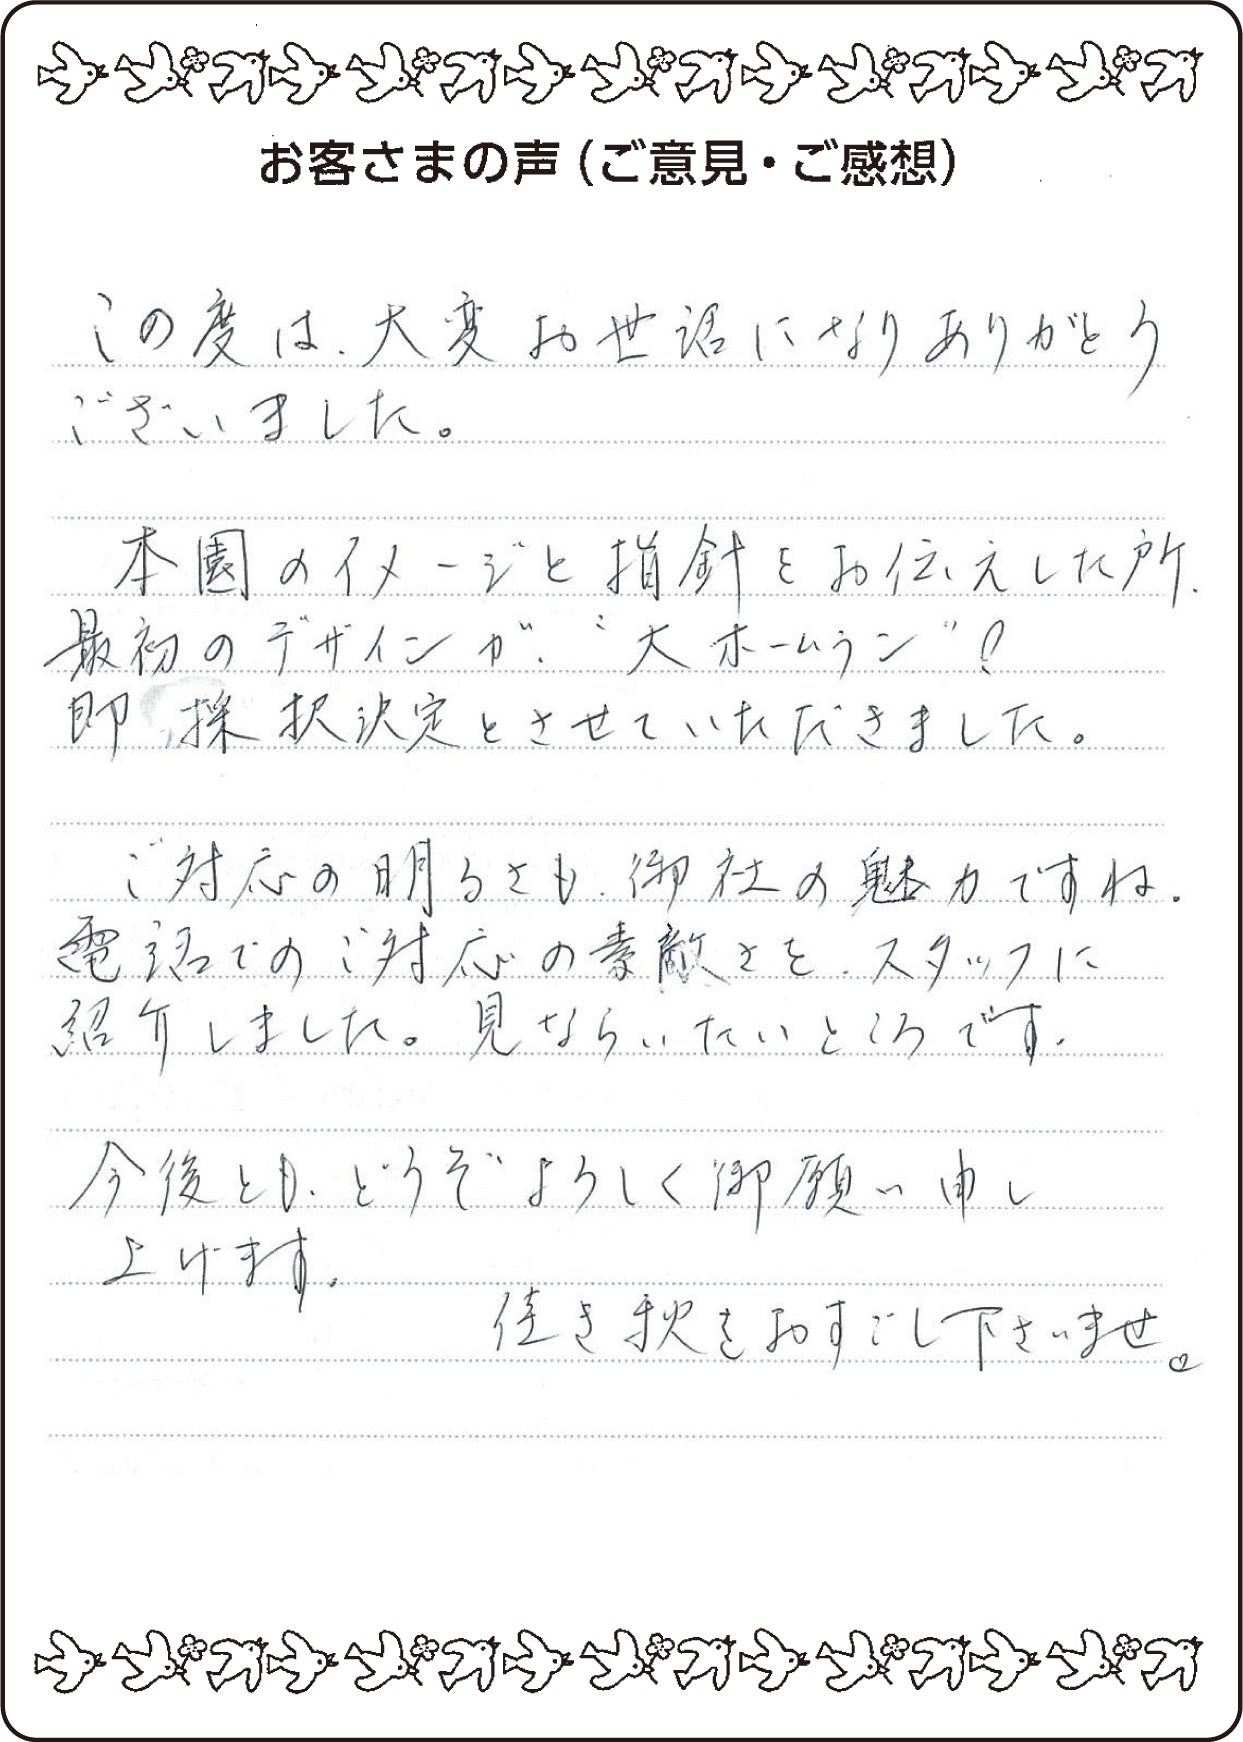 お客さまの声(ご意見・ご感想)
この度は、大変お世話になりありがとう
ございました。
本園のイメージと指針をお伝えした所、
最初のデザインが、“大ホームラン”!
即採択決定とさせていただきました。
ご対応の明るさも、御社の魅力ですね。
電話でのご対応の素敵さを、スタッフに
紹介しました。見ならいたいところです。
今後とも、どうぞよろしく御願い申し
上げます。
佳き秋をおすごし下さいませ。